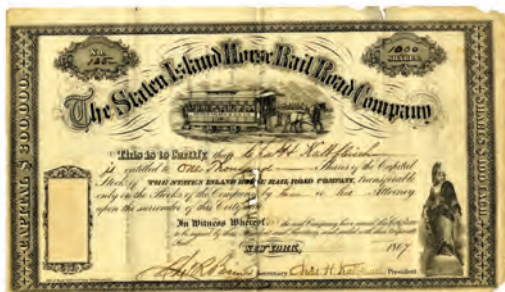 No.
1000
SHARES
The Staten Island Horse Rail Road Company
CAPITAL $ 300,000.
SHARES $100 EACH
This is to Certify that Chas H Kalbfleisch
is entitled to One Thousand Shares of the Capital
Stock of THE STATEN ISLAND HORSE RAIL ROAD COMPANY, transferable
only on the Books of the Company by him or his Attorney
upon the surrender of this Certificate.
In Witness Whereof, the said Company have caused this Certificate
to be signed by their President and Secretary and sealed with their Corporate
Seal.
NEW YORK, 1867
Secretary President